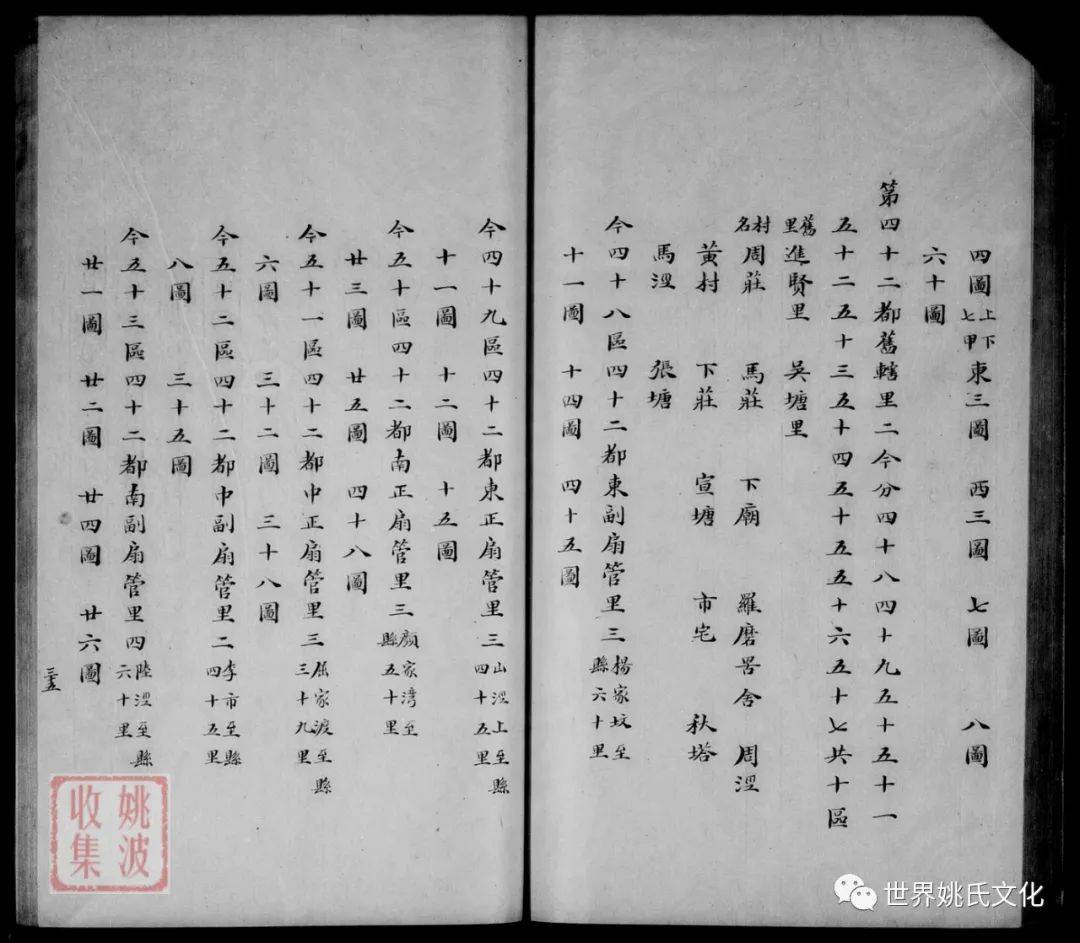 四圖上下七甲 東三圖 西三圖 七圖 八圖
六十圖
第四十二都舊轄里二今分四十八四十九五十五十一
五十二五十三五十四五十五五十六五十七共十區
舊里 進賢里 吳塘里
村名 周莊 馬莊 下廟 羅磨罟舍 周涇
黃村 下莊 宣塘 市宅 秋塔
馬涇 張塘
今四十八區四十二都東副扇管里三 楊家坟至縣六十里
十一圖 十四圖 四十五圖
今四十九區四十二都東正扇管里三 山涇上至縣四十五里
十一圖 十二圖 十五圖
今五十區四十二都南正扇管里三 顏家灣至縣五十里
廿三圖 廿五圖 四十八圖
今五十一區四十二都中正扇管里三 屈家渡至縣三十九里
六圖 三十二圖 三十八圖
今五十二區四十二都中副扇管里二 李市至縣四十五里
八圖 三十五圖
今五十三區四十二都南副扇管里四 陸涇至縣六十里
廿一圖 廿二圖 廿四圖 廿六圖
三五
姚波
收集
世界姚氏文化